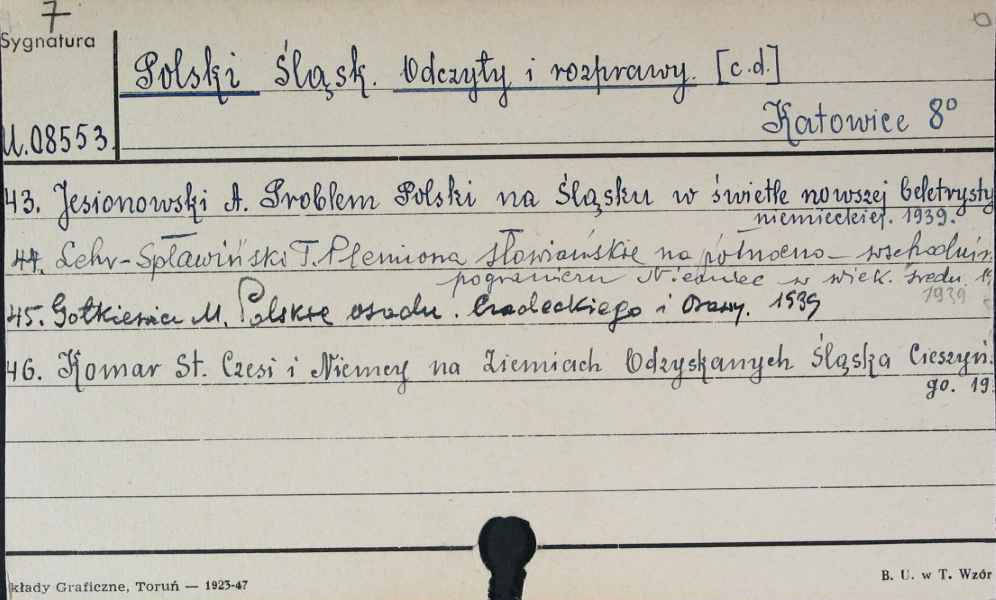 7
Sygnatura
Polski Śląsk. Odczyty i rozprawy. [c.d.]
Katowice 8°
U.08553.
43. Jesionowski A. Problem Polski na Śląsku w świetle nowszej beletrysty
niemieckiej. 1939.
44. Lehr-Spławiński T. Plemiona słowiańskie na północno-wschodnim
pograniczu Niemiec w wiek. średn.
1939
45. Gotkiewicz M. Polskie osadn. Czadeckiego i Orawy. 1939
46. Komar St. Czesi i Niemcy na Ziemiach Odzyskanych Śląska Cieszyń.
go. 19
kłady Graficzne, Toruń — 1923-47
B. U. w T. Wzór